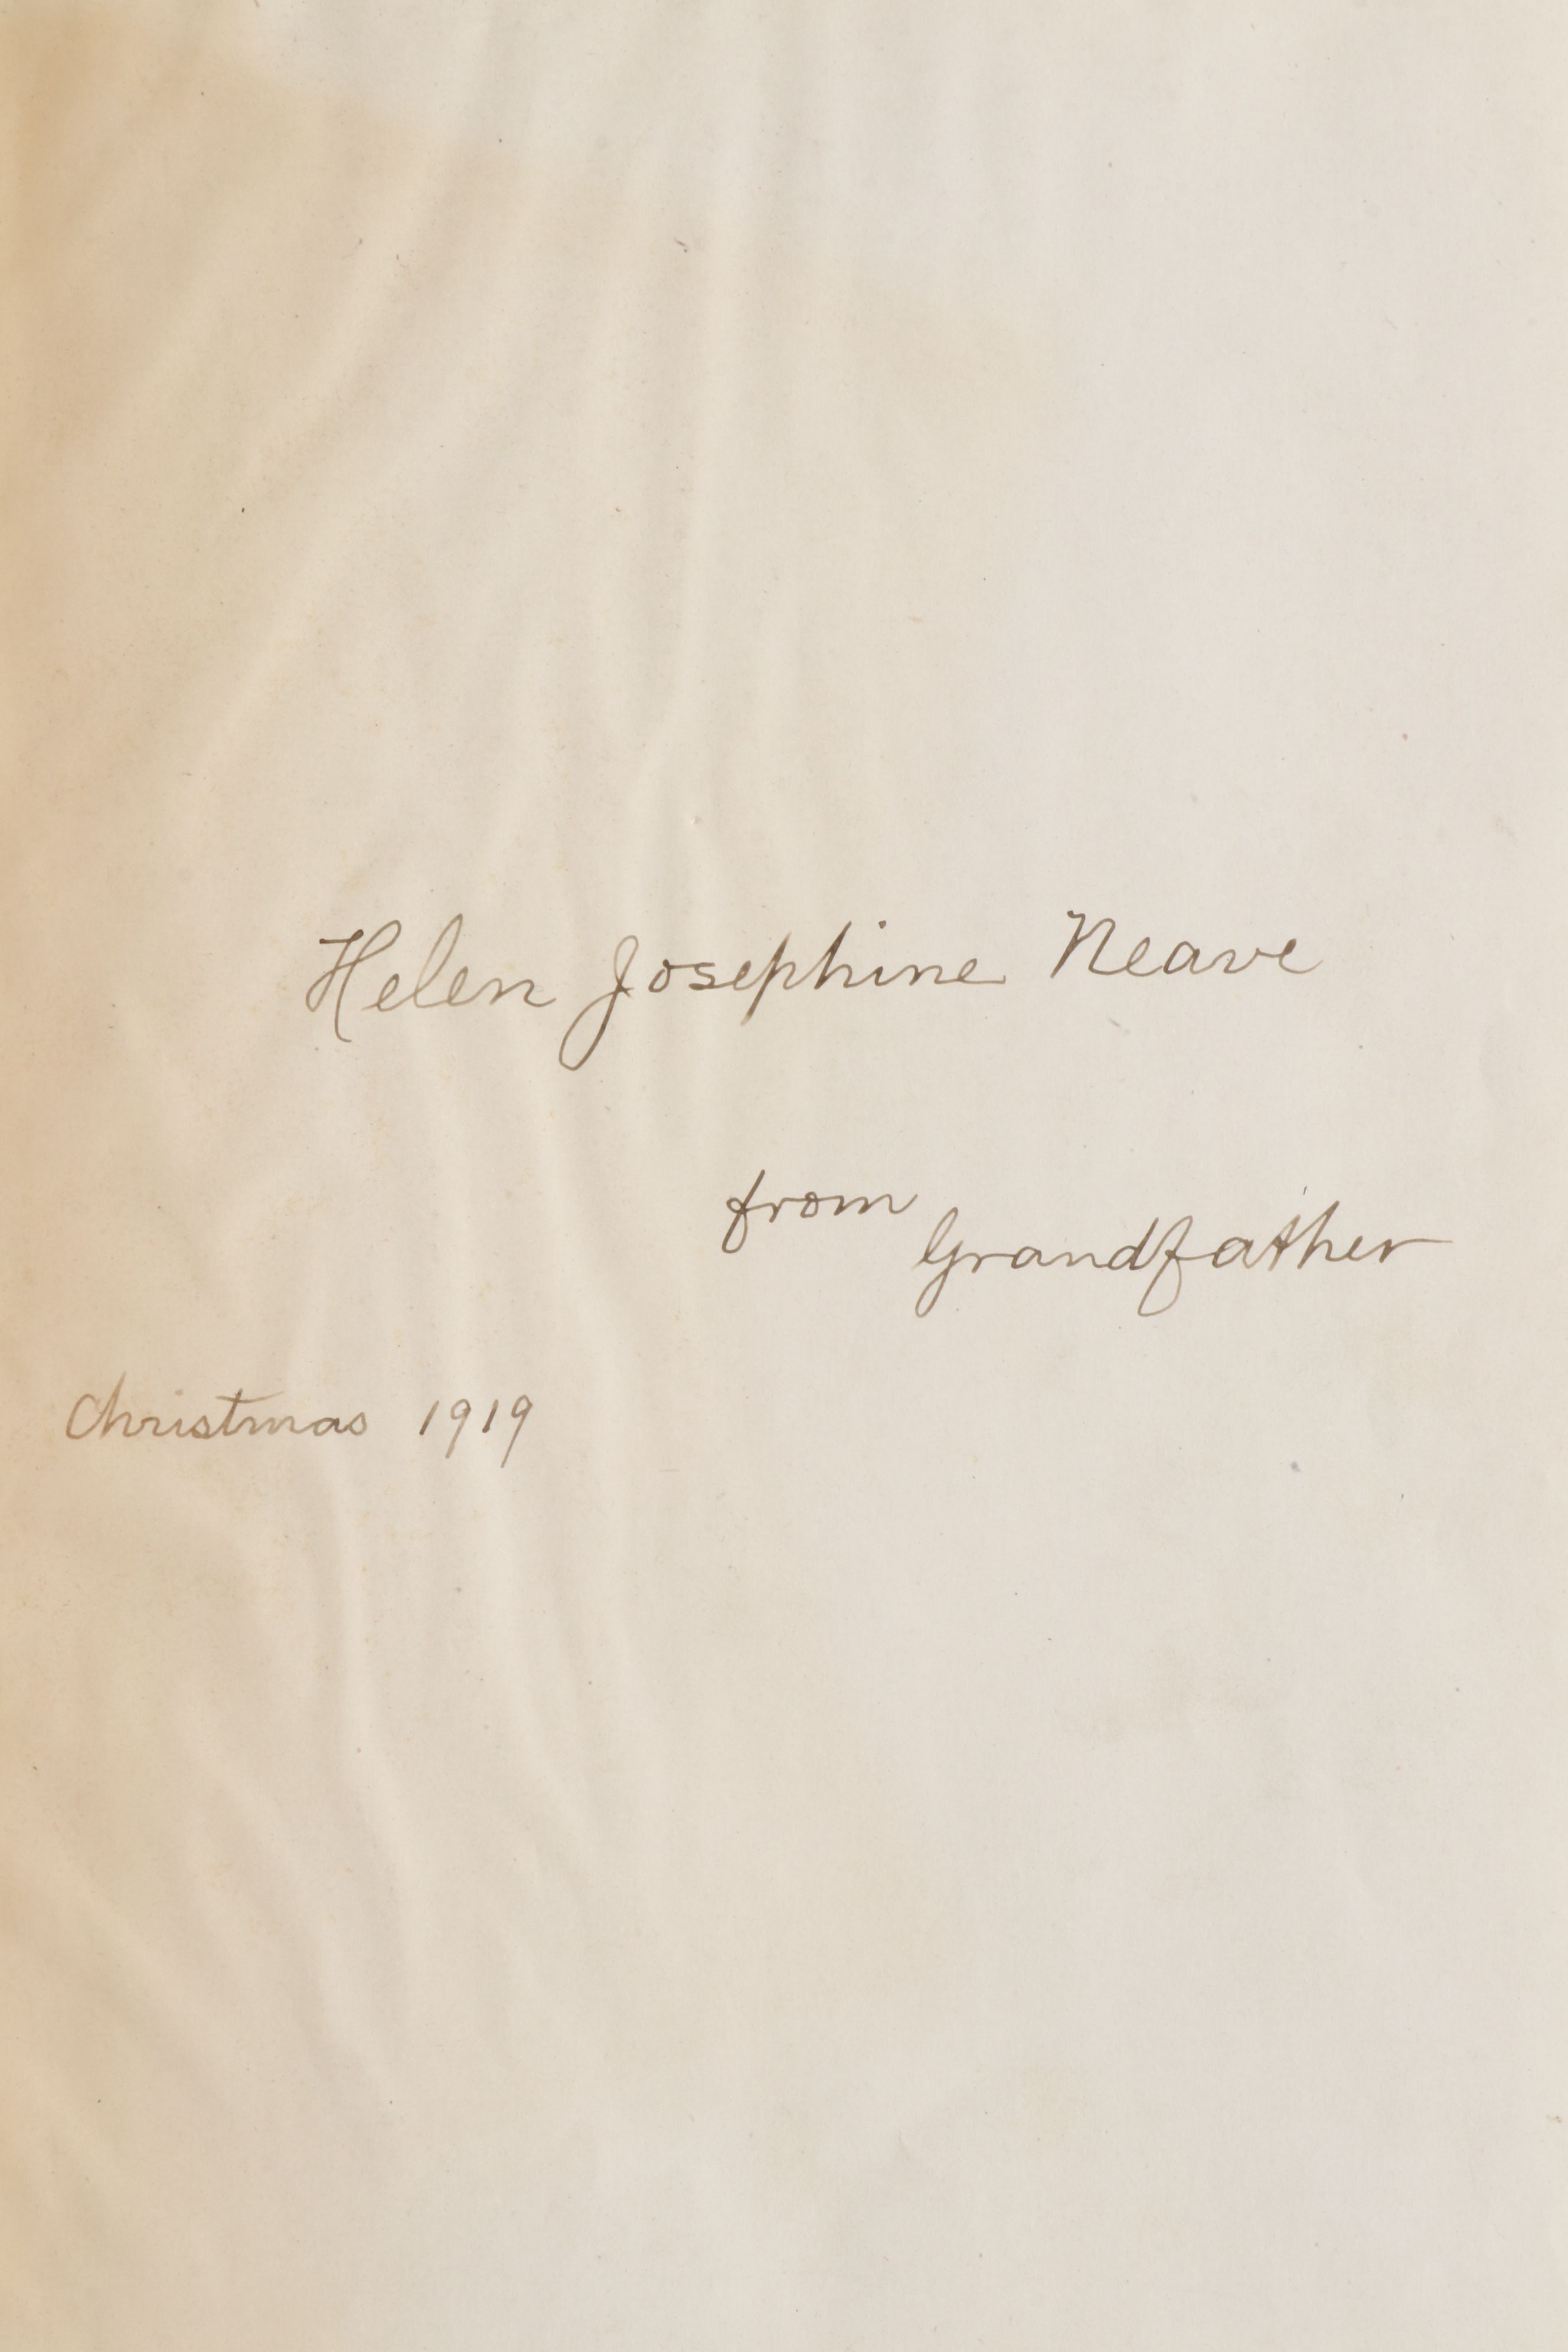 Helen Josephine Neave
from
Grandfather
Christmas 1919